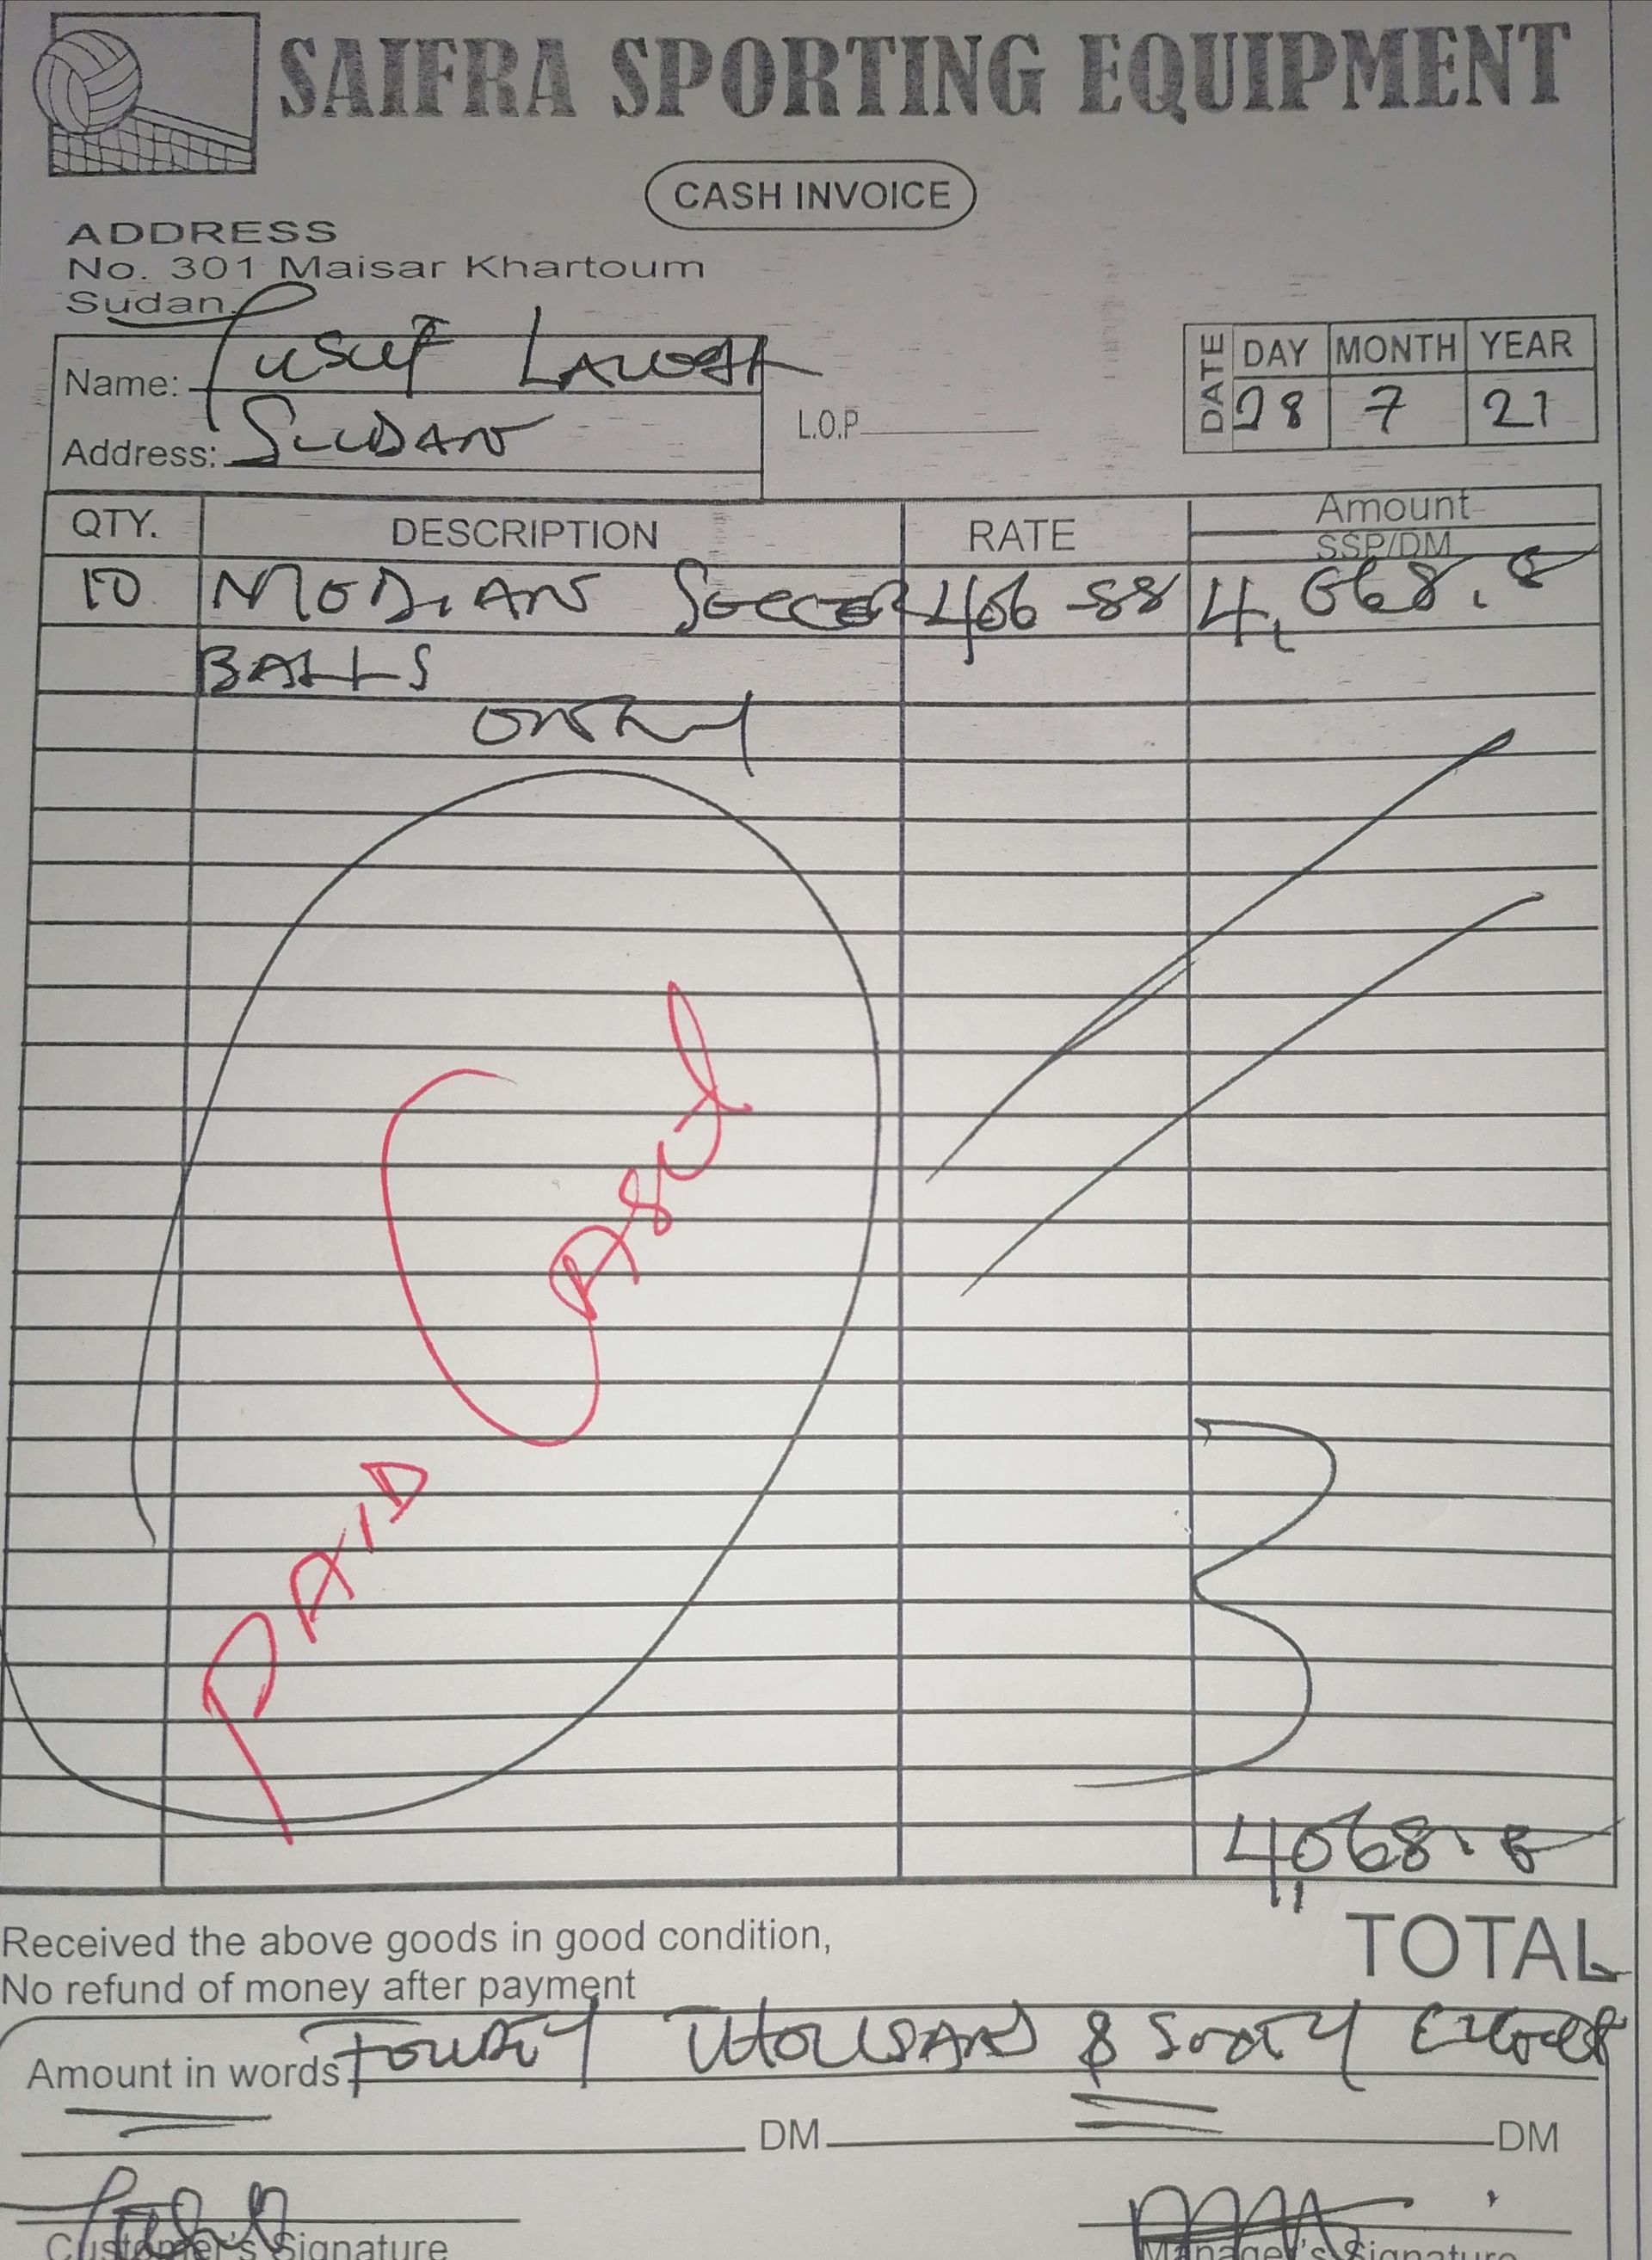 SAIFRA SPORTING EQUIPMENT
CASH INVOICE
ADDRESS
No. 301 Maisar Khartoum
Sudan.
Name: Yusuf
Address: SUDAN
L.O.P
DATE DAY MONTH YEAR
28 7 21
QTY. DESCRIPTION RATE Amount
SSP/DM
10 SOCCER 406-88 4,068.8
BALLS
ONLY
PAID CASH
4,068.8
Received the above goods in good condition,
TOTAL
No refund of money after payment
Amount in words THOUSAND & SIXTY
DM DM
Customer's Signature Manager's Signature